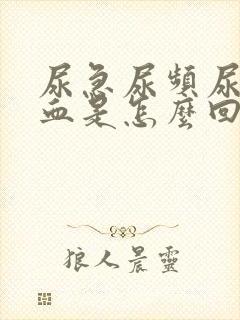 尿急尿頻尿
血是怎麼回
狼人晨靈